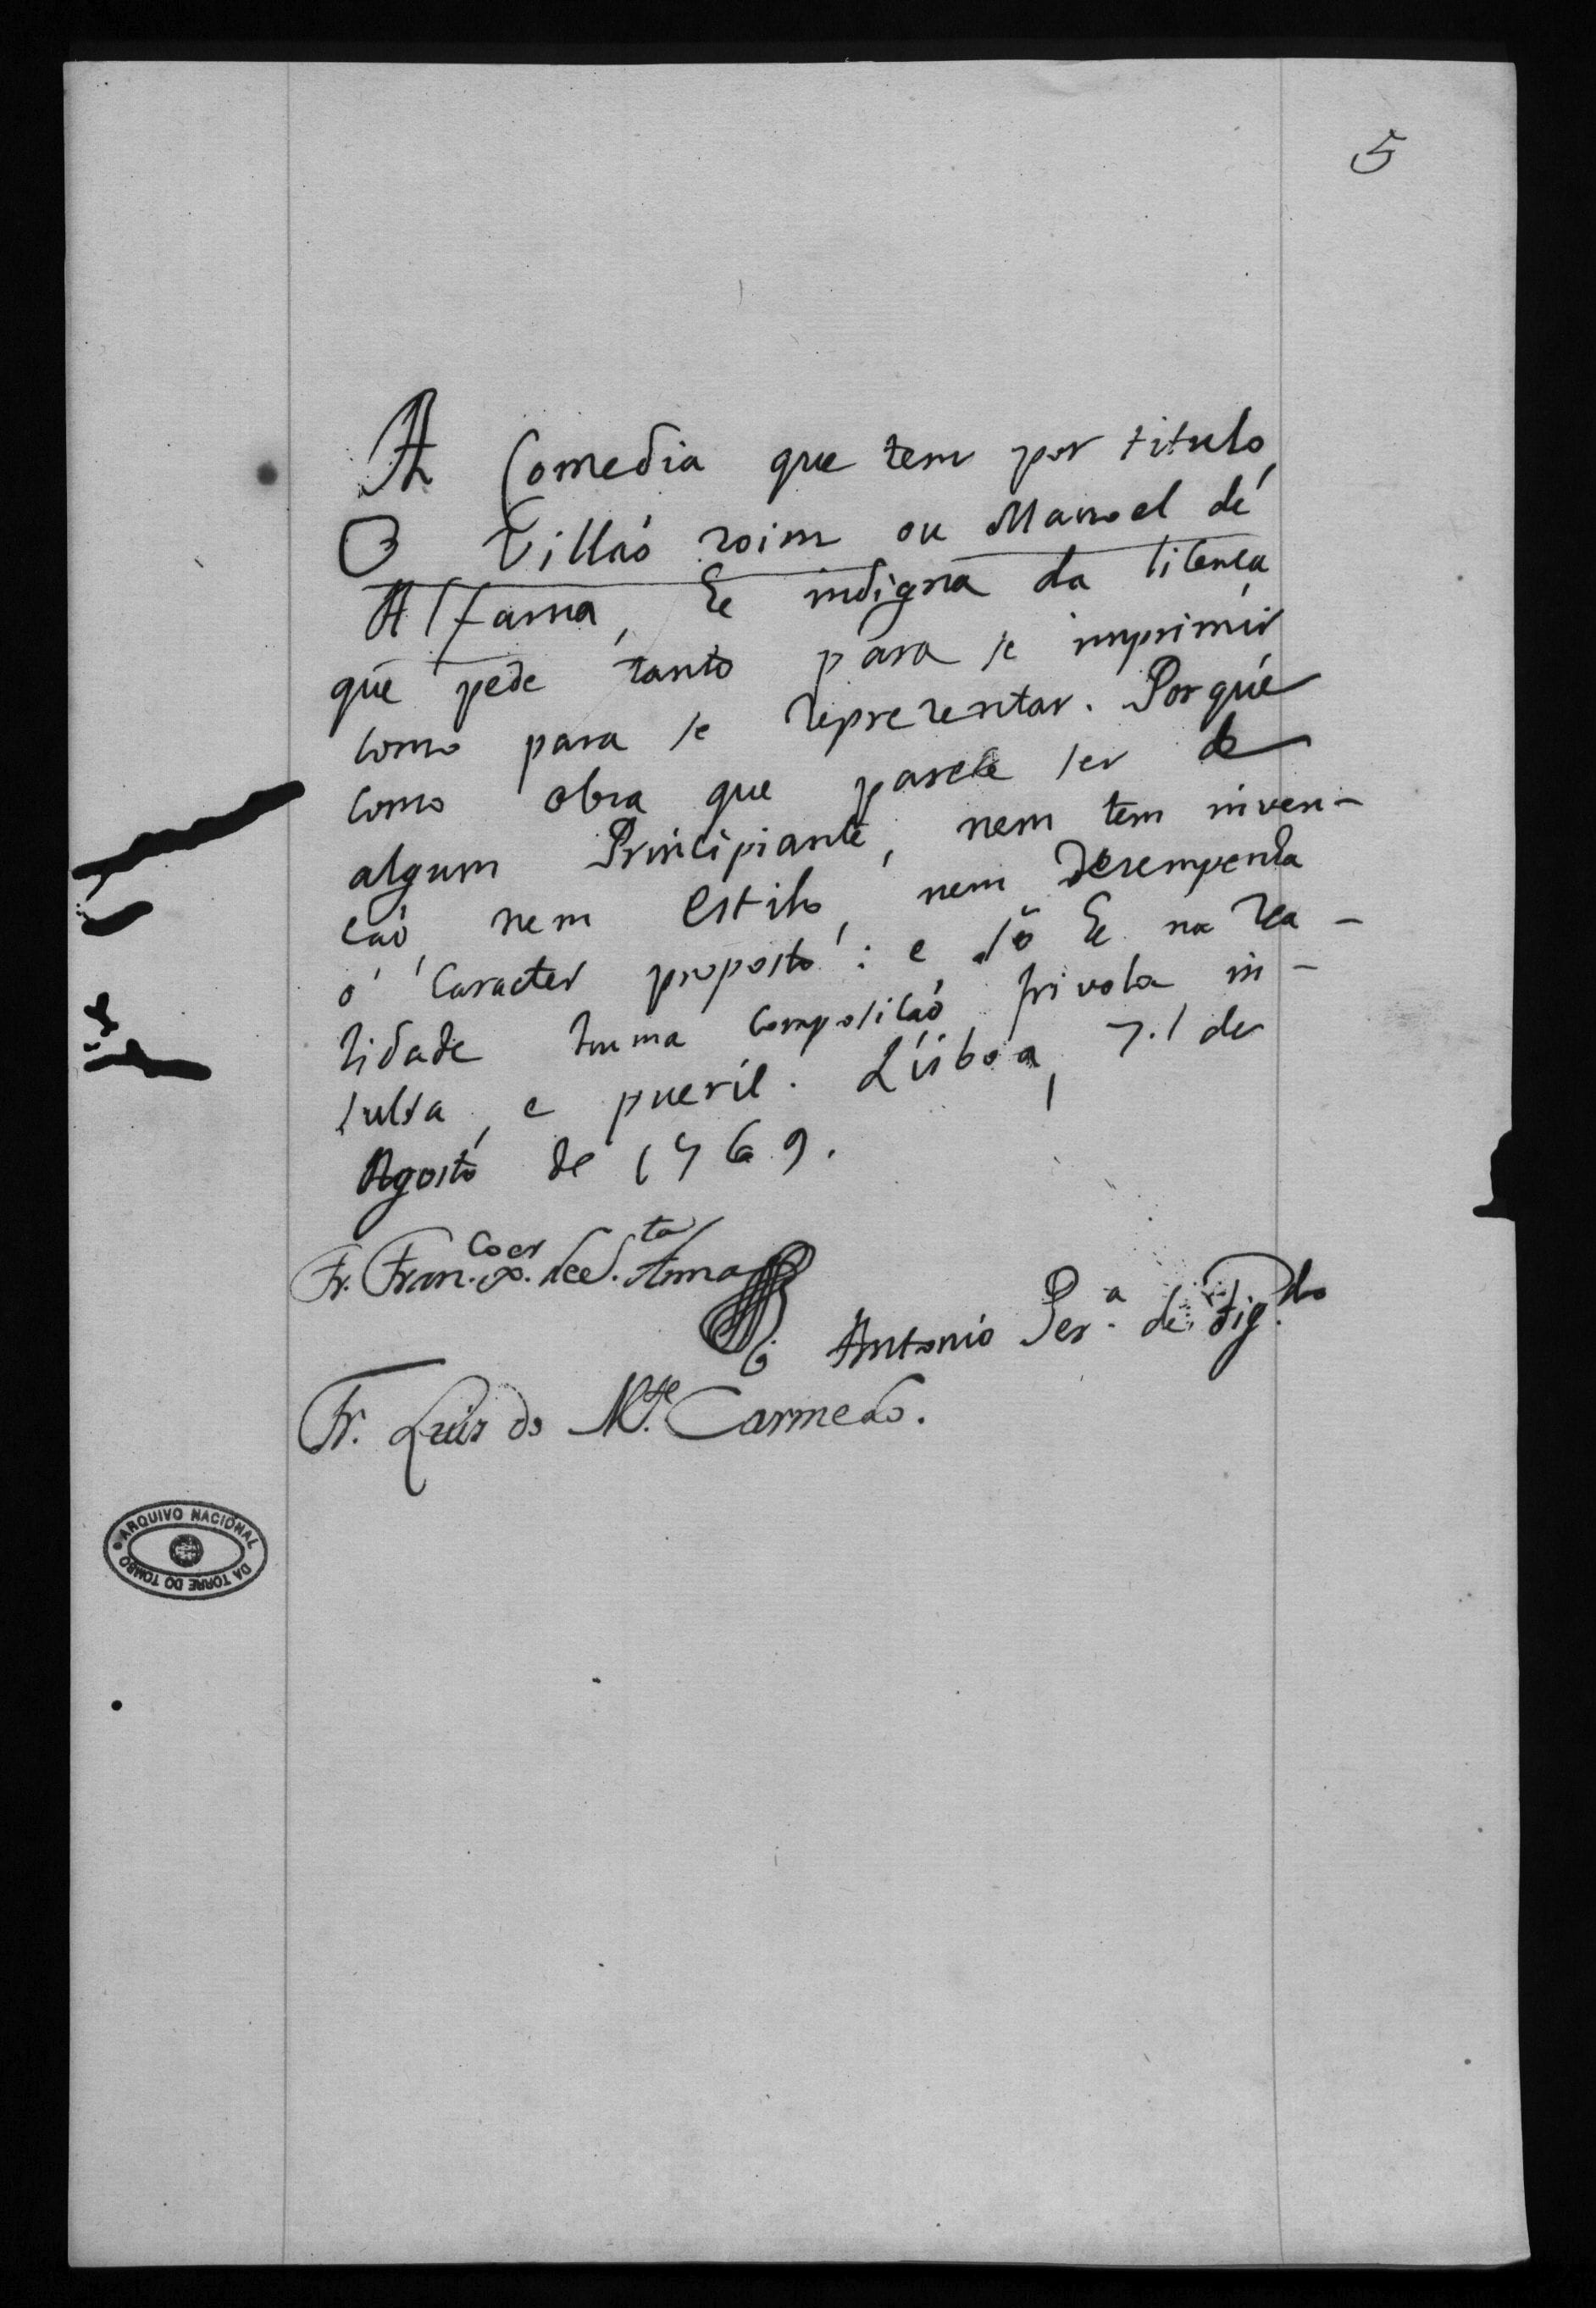 5
A Comedia que tem por titulo
O Villaõ roim ou Manoel de
Alfama, he indigna da licença
que pede tanto para se imprimir
como para se reprezentar. Porque
como obra que parece ser de
algum Principiante, nem tem inven-
çaõ, nem estilo, nem dezempenha
o caracter proposto: e só he na rea-
lidade huma composiçaõ frivola in-
sulsa, e pueril. Lisboa, de
Agosto de 1769.
Fr. Fran.co X.er de S.ta Anna
Antonio Per.a de Fig.do
Fr. Luis do M.te Carmelo.
ARQUIVO NACIONAL DA TORRE DO TOMBO